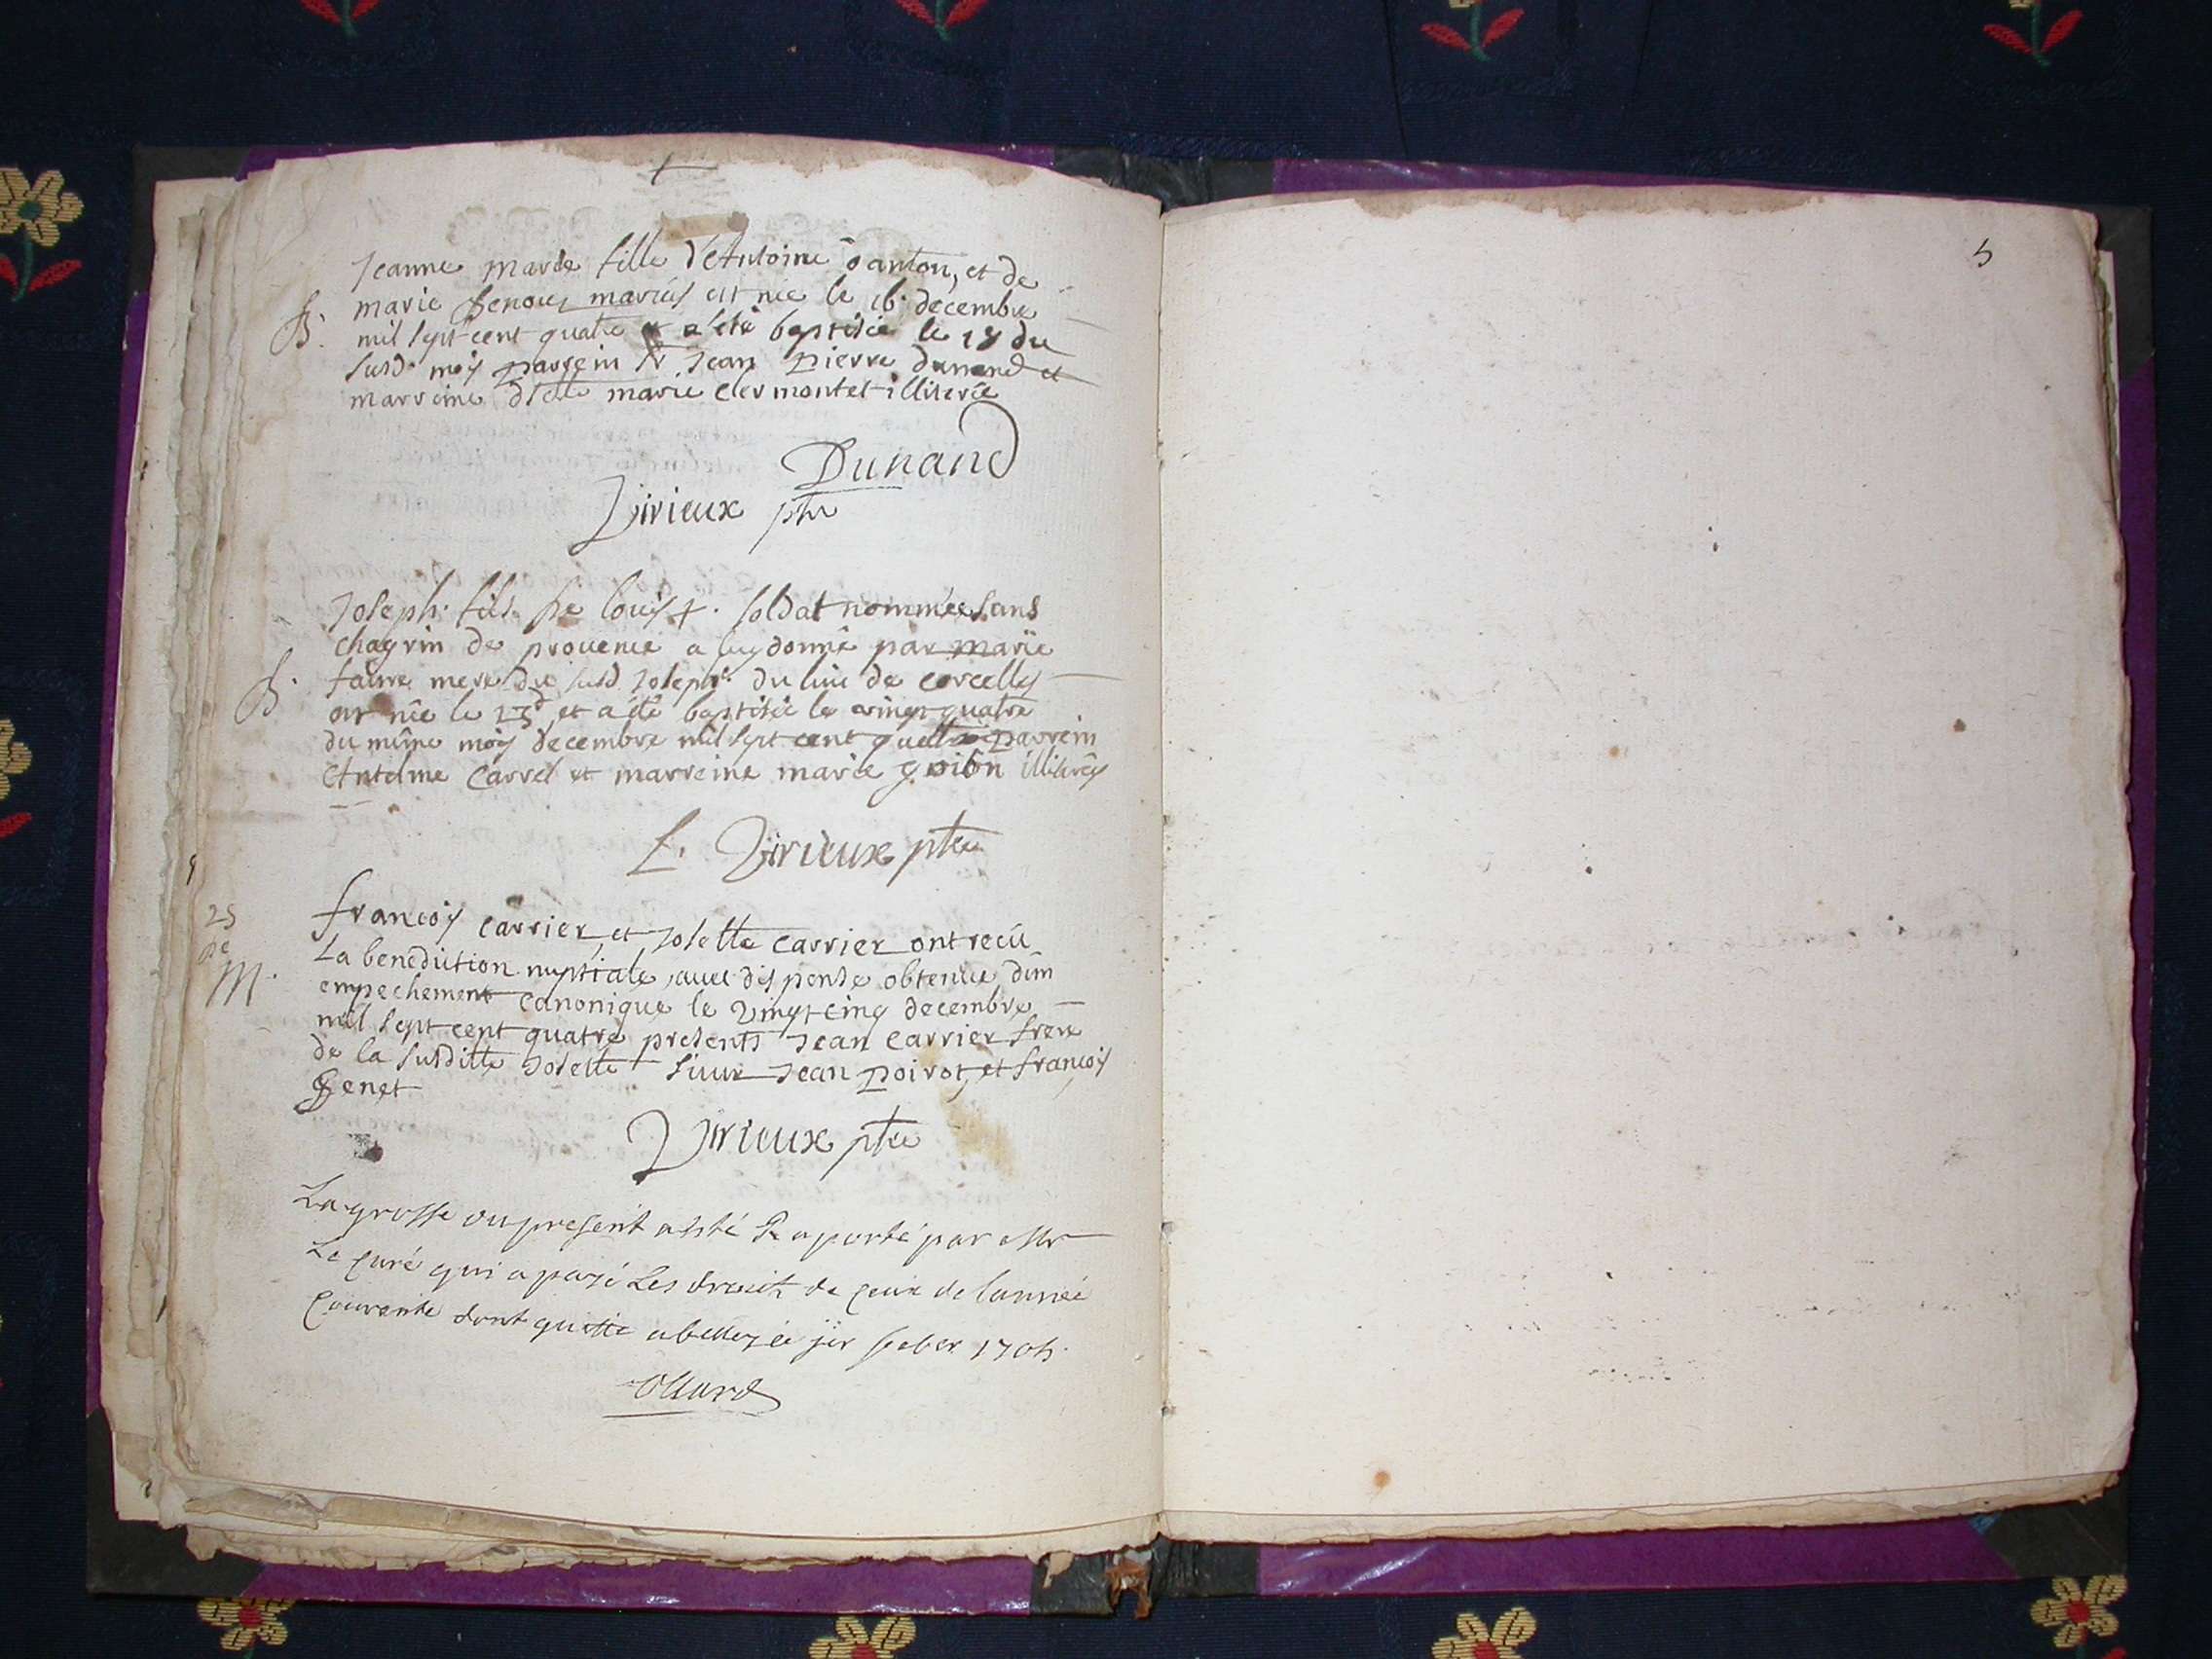 Jeanne marie fille d'Antoine Janton, et de
B. marie Genous mariés est née le 16. decembre
mil sept cent quatre et a été baptisée le 18 du
susd. mois parrein Sr. Jean pierre dunand et
marreine dlle marie clermontet illiterée
Dunand
Virieux ptre
Joseph. fils de louis +. soldat nommée sans
chagrin de provence a luy donné par marie
B. faivre mere du susd Joseph. du lieu de corcelles
est née le 23d et a été baptisée le vingt quatre
du même mois decembre mil sept cent quattre parrein
Antelme Carrel et marreine marie guion illiterés
L. Virieux ptre
25 francois carrier, et Josette carrier ont recû
De
M. La benediction nuptiale, avec dispense obtenue d'un
empechement canonique le vingt cinq decembre
mil sept cent quatre presents Jean carrier frere
de la susditte Josette Sieur Jean poirot, et francois
Genet
Virieux ptre
La grosse du present a esté Raporté par Mr
Le curé qui a payé Les droits de ceux de l'année
courante dont quitte a belley ce 1705.
Ollard
5